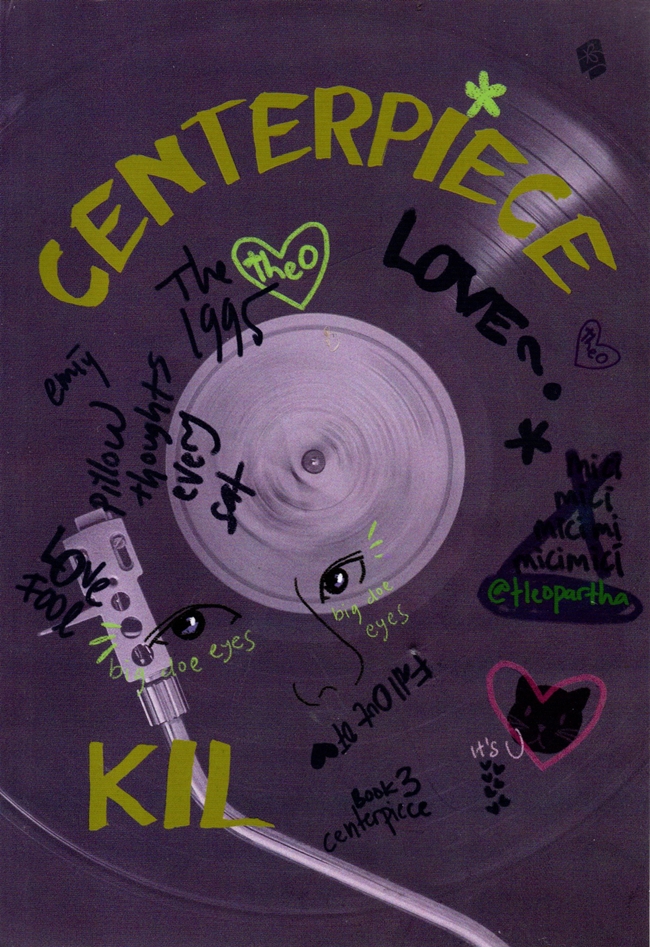 CENTERPIECE
theo
LOVE?
The
1995
theo
emiy
pillow
thoughts
every
sat
*
mici
mici
micimi
micimici
@tleopartha
LOVE
FOOL
big doe eyes
big doe
eyes
Fall Out
It's U
KIL
Book 3
centerpiece